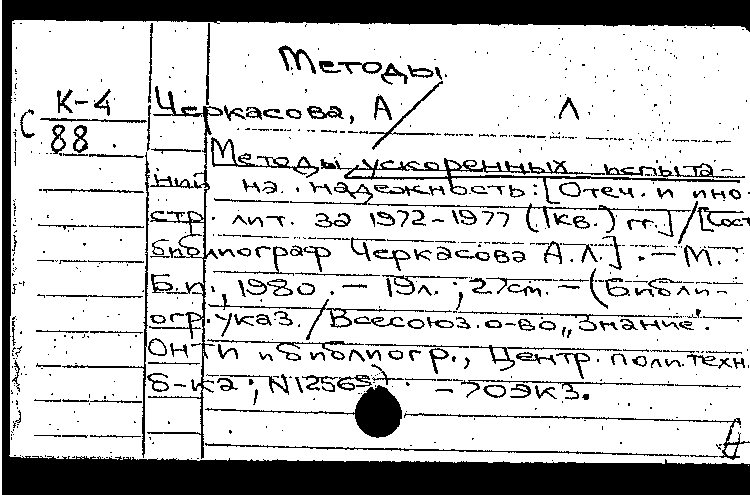 Методы
К-4 Черкасова, А Л
С 88. Методы ускоренных испыта-
ний на надежность: [Отеч. и ино
стр. лит. за 1972-1977 (I кв.) гг.] / [Сост
библиограф Черкасова А.Л.]. - М. :
Б.и., 1980. - 19л. ; 27см. - (Библи-
огр. указ. / Всесоюз. о-во „Знание".
ОНТИ и библиогр., Центр. политехн.
б-ка ; N1256 . - 70экз.